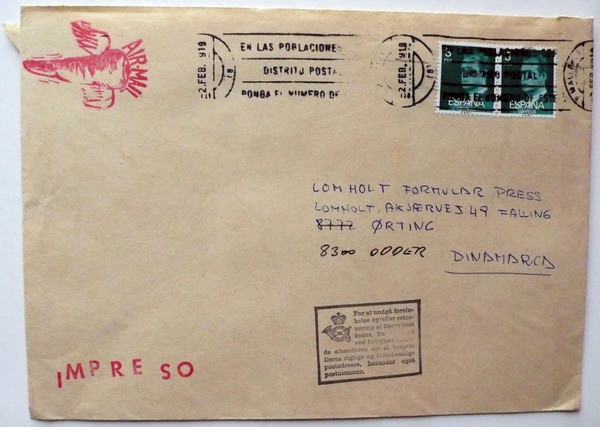 AIR-MAIL
2.FEB. 919
EN LAS POBLACIONES
DISTRITO POSTAL
PONGA EL NUMERO DE
2.FEB. 919
DISTRITO POSTAL
3
PTA
3
PTA
ESPAÑA
ESPAÑA
LOMHOLT FORMULAR PRESS
LOMHOLT, AKJÆRVEJ 49 FALLING
8772 ØRTING
8300 ODDER
DINAMARCA
For at undgå forsin-
kelse og/eller retur-
nering af Deres post
bedes De
ved lejlighed
de afsenderen om at benytte
Deres rigtige og fuldstændige
postadresse, herunder også
postnummer.
IMPRESO